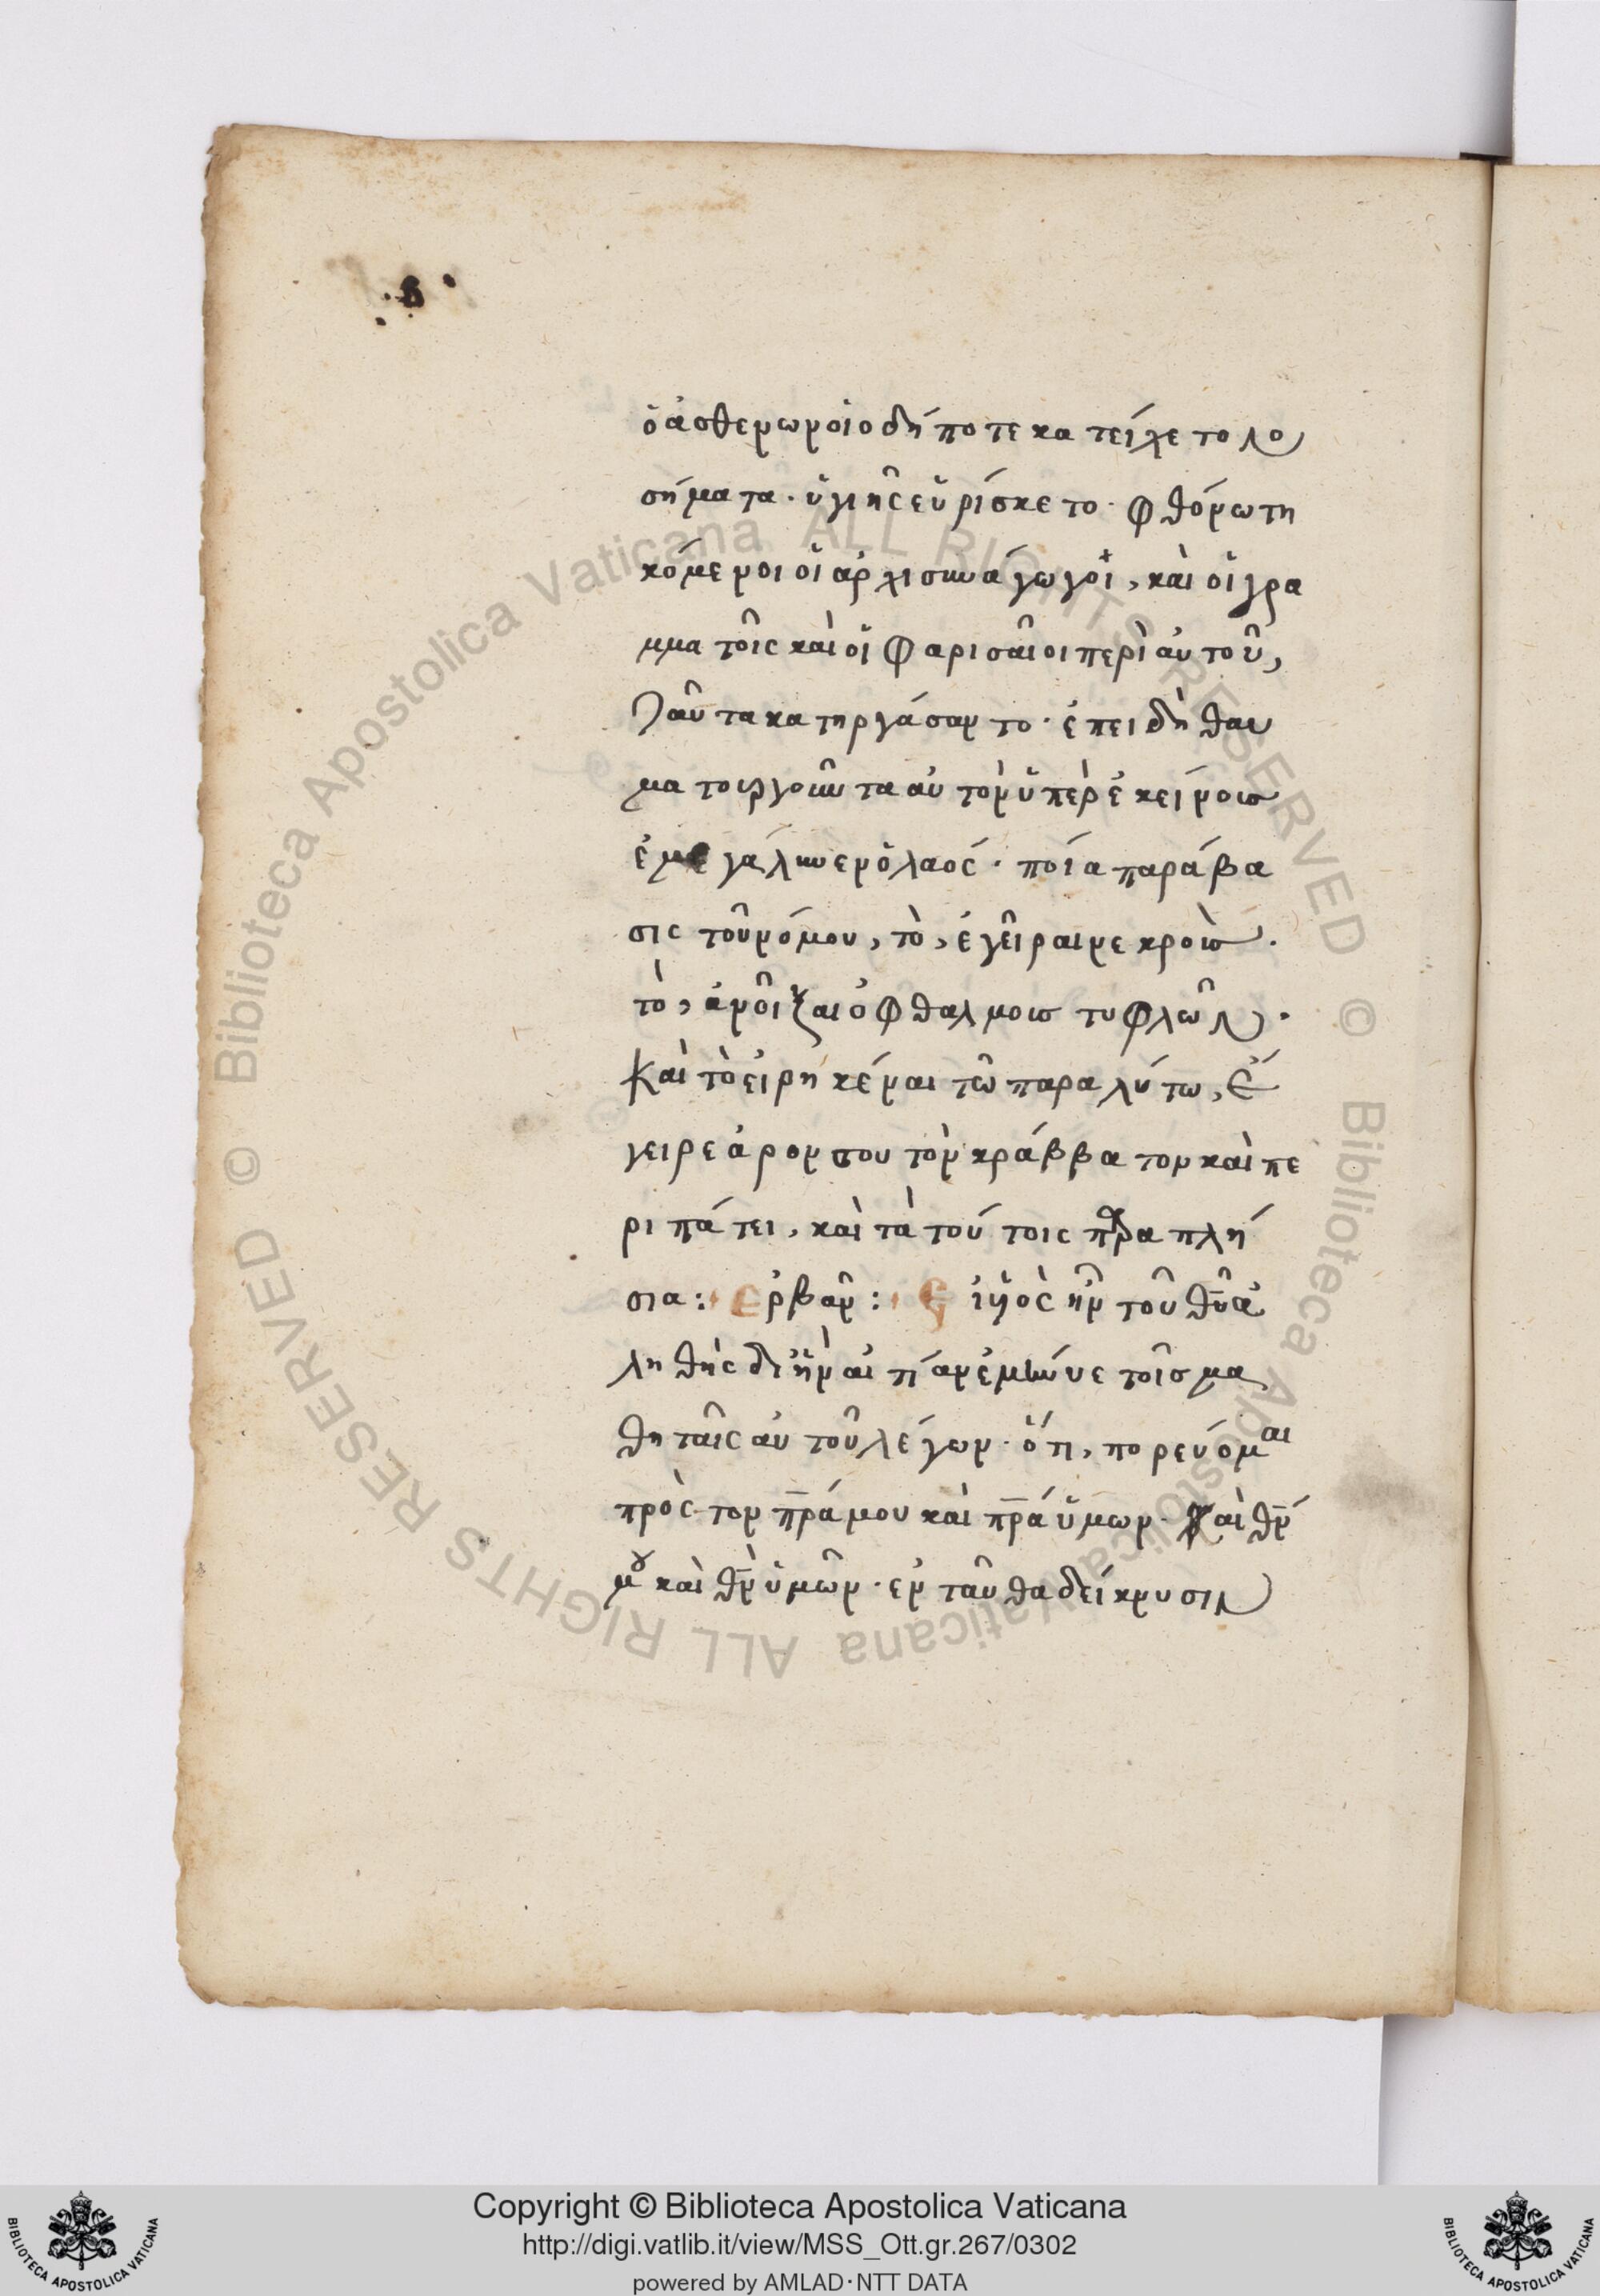 ὁ ἀσθενῶν οἱοδήποτε κατείχετο νο
σήματα· ὑγιὴς εὑρίσκετο· φθόνω τη
κόμενοι οἱ ἀρχισυνάγωγοι, καὶ οἱ γρα
μματοῖς καὶ οἱ φαρισαῖοι περὶ αὐτοῦ,
ταῦτα κατηργάσαντο· ἐπειδὴ θαυ
ματουργοῦντα αὐτὸν ὑπὲρ ἐκείνους
ἐμεγάλυνεν ὁ λαός· ποία παράβα
σις τοῦ νόμου, τὸ, ἐγεῖραι νεκροὺς·
τὸ, ἀνοῖξαι ὀφθαλμους τυφλῶν·
Καὶ τὸ εἰρηκέναι τῶ παραλύτω, Ἔ
γειρε ἆρον σου τὸν κράββατον καὶ πε
ριπάτει, καὶ τὰ τούτοις παραπλή
σια: Ερβαν: Ε ἰ υἱὸς ἦν τοῦ θῦ ἀ
ληθὴς διῆν αι τί ανεμίνυε τοῖς μα
θηταῖς αὐτοῦ λέγων· ὅτι, πορεύομαι
πρὸς τον πρα μου καὶ πρα ὑμων· Καὶ θν
μου καὶ θν ὑμῶν· ενταῦθα δείκνυσιν
Copyright © Biblioteca Apostolica Vaticana
http://digi.vatlib.it/view/MSS_Ott.gr.267/0302
powered by AMLAD·NTT DATA
BIBLIOTECA APOSTOLICA VATICANA
BIBLIOTECA APOSTOLICA VATICANA
© Biblioteca Apostolica Vaticana ALL RIGHTS RESERVED © Biblioteca Apostolica Vaticana ALL RIGHTS RESERVED